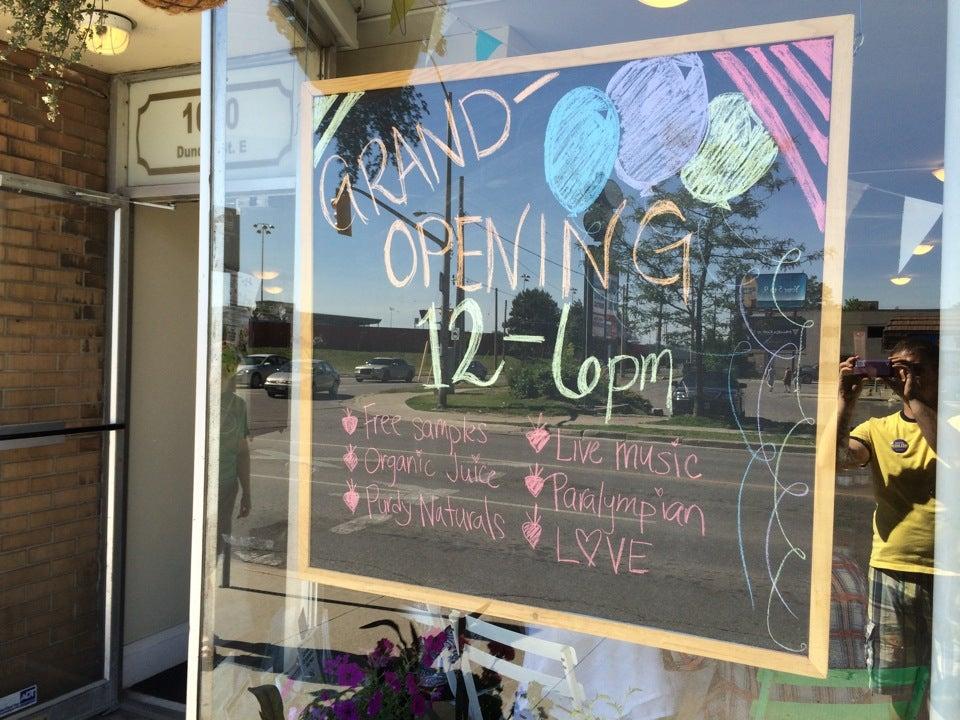 Dundas St. E
GRAND
OPENING
12-6pm
Free samples
Organic Juice
Purdy Naturals
Live music
Paralympian
LOVE
ADT